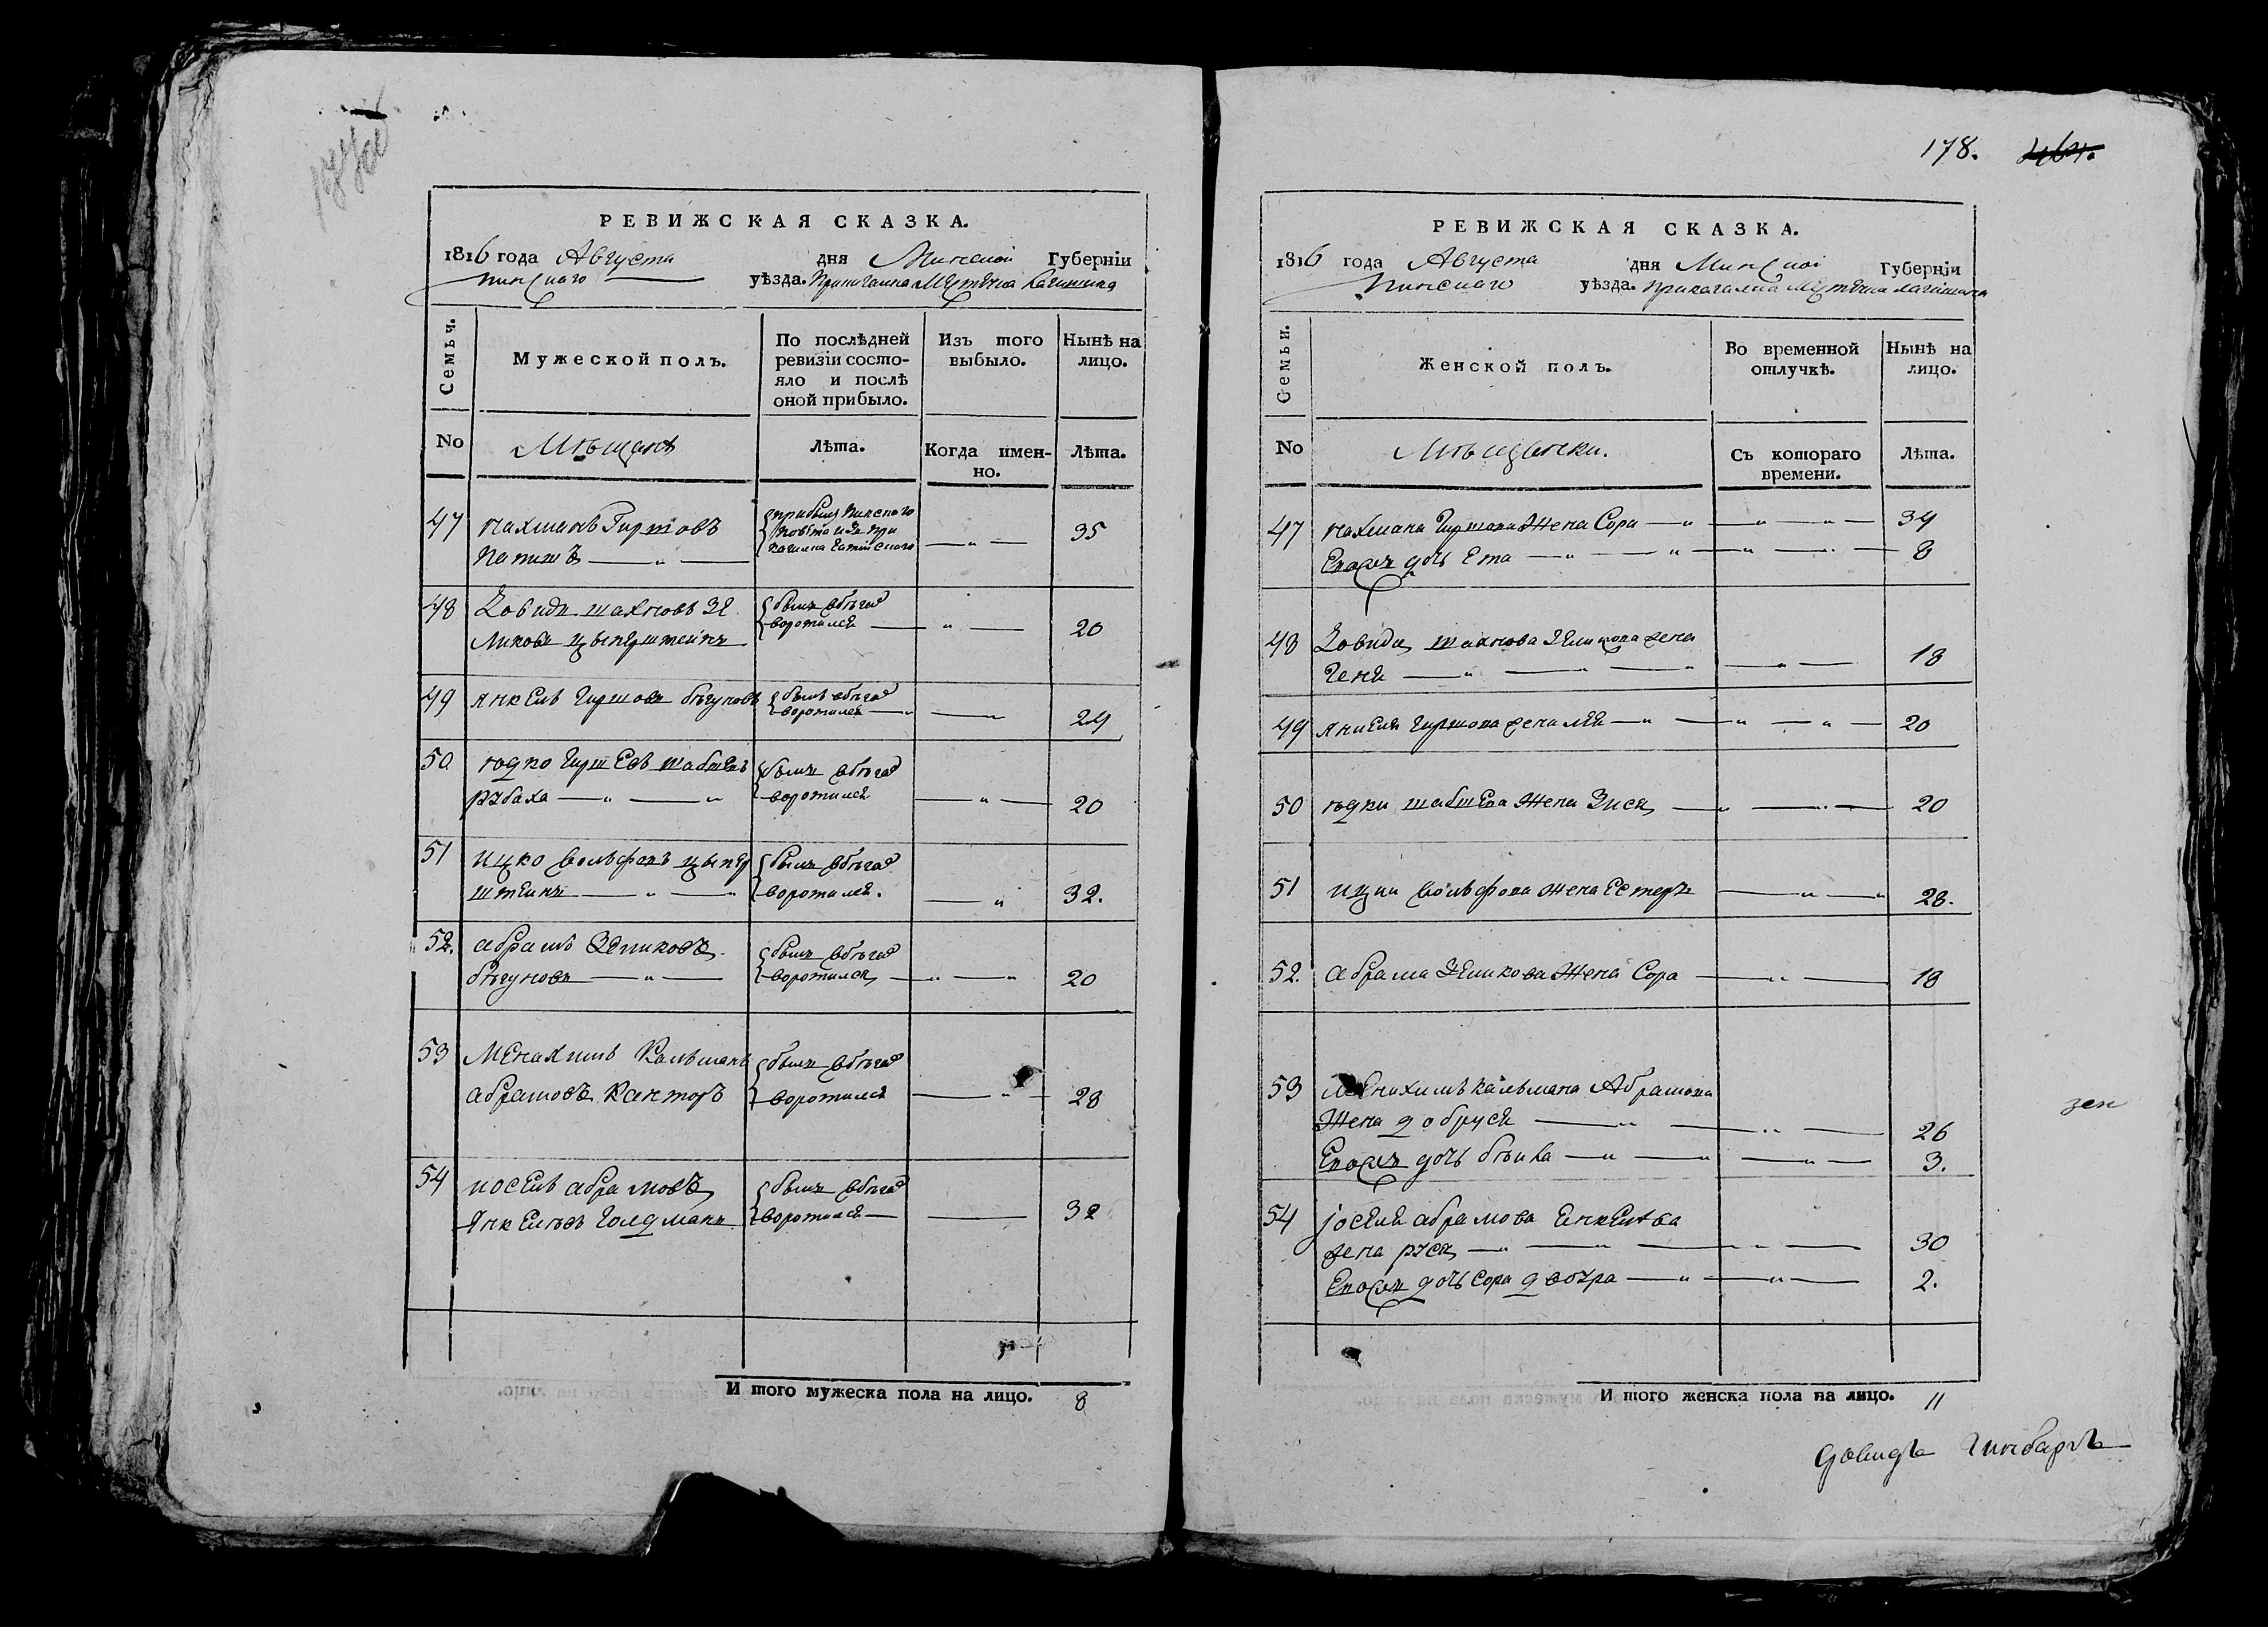 РЕВИЖСКАЯ СКАЗКА.
1816 года Августа дня Минской Губернїи
Пинского уѣзда. Прикагалка Местечка Лагишина
Семьи.
Мужеской полъ.
По послѣдней ревизїи состояло и послѣ оной прибыло.
Изъ того выбыло.
Нынѣ на лицо.
No
Мѣщане
Лѣта.
Когда именно.
Лѣта.
47 Нахманъ Гиршовъ прибылъ Пинского
35
48 Довидъ Шахновъ Зе былъ вбѣгах
ликовъ Цынерштейнъ воротился 20
49 Янкель Гиршовъ бѣгуновъ былъ вбѣгах
воротился 24
50 Юдко Гиршевъ былъ вбѣгах
рыбаха воротился 20
51 Ицко Вольфовъ Цынер былъ вбѣгах
штейнъ воротился. 32.
52. Абрамъ Зеликовъ былъ вбѣгах
бѣгуновъ воротился 20
53 Менахимъ Кальманъ былъ вбѣгах
Абрамовъ Канторъ воротился 28
54 Иосель Абрамовъ былъ вбѣгах
Янкелевъ Голдманъ воротился 32
И того мужеска пола на лицо. 8
178.
РЕВИЖСКАЯ СКАЗКА.
1816 года Августа дня Минской Губернїи
Пинского уѣзда. Прикагалка Местечка Лагишина
Семьи.
Женской полъ.
Во временной отлучкѣ.
Нынѣ на лицо.
No
Мѣщанки.
Съ котораго времени.
Лѣта.
47 Нахмана Гиршова Жена Сора 34
Евожъ дочь Ета 8
48 Довида Шахнова Зеликова жена
Геня 18
49 Янкеля Гиршова жена Лея 20
50 Юдки жена Зися 20
51 Ицки Вольфова жена Естеръ 28.
52. Абрама Зеликова Жена Сора 18
53 Менахимъ Кальмана Абрамова
Жена Добруся 26
Евожъ дочь 3.
54 Іоселя Абрамова Енкелева
жена рыся 30
Евожъ дочь Сора Двоыра 2.
И того женска пола на лицо. 11
Довидъ Гинбаргъ